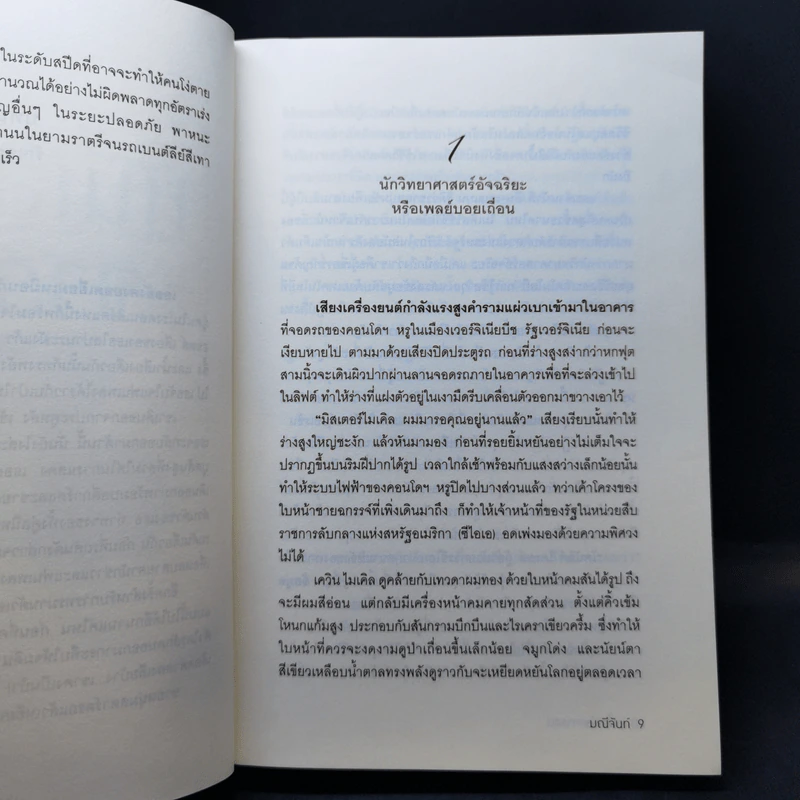 ในระดับสปีดที่อาจจะทำให้คนโง่ตาย
านวณได้อย่างไม่ผิดพลาดทุกอัตราเร่ง
ญอื่นๆ ในระยะปลอดภัย พาหนะ
านนในยามราตรีจนรถเบนต์ลีย์สีเทา
เร็ว
1
นักวิทยาศาสตร์อัจฉริยะ
หรือเพลย์บอยเถื่อน
เสียงเครื่องยนต์กำลังแรงสูงคำรามแผ่วเบาเข้ามาในอาคาร
ที่จอดรถของคอนโดฯ หรูในเมืองเวอร์จิเนียบีช รัฐเวอร์จิเนีย ก่อนจะ
เงียบหายไป ตามมาด้วยเสียงปิดประตูรถ ก่อนที่ร่างสูงสง่ากว่าหกฟุต
สามนิ้วจะเดินผิวปากผ่านลานจอดรถภายในอาคารเพื่อที่จะล่วงเข้าไป
ในลิฟต์ ทำให้ร่างที่แฝงตัวอยู่ในเงามืดรีบเคลื่อนตัวออกมาขวางเอาไว้
“มิสเตอร์ไมเคิล ผมมารอคุณอยู่นานแล้ว” เสียงเรียบนั้นทำให้
ร่างสูงใหญ่ชะงัก แล้วหันมามอง ก่อนที่รอยยิ้มหยันอย่างไม่เต็มใจจะ
ปรากฏขึ้นบนริมฝีปากได้รูป เวลาใกล้เช้าพร้อมกับแสงสว่างเล็กน้อยนั้น
ทำให้ระบบไฟฟ้าของคอนโดฯ หรูปิดไปบางส่วนแล้ว ทว่าเค้าโครงของ
ใบหน้าชายฉกรรจ์ที่เพิ่งเดินมาถึง ก็ทำให้เจ้าหน้าที่ของรัฐในหน่วยสืบ
ราชการลับกลางแห่งสหรัฐอเมริกา (ซีไอเอ) อดเพ่งมองด้วยความพิศวง
ไม่ได้
เควิน ไมเคิล ดูคล้ายกับเทวดาผมทอง ด้วยใบหน้าคมสันได้รูป ถึง
จะมีผมสีอ่อน แต่กลับมีเครื่องหน้าคมคายทุกสัดส่วน ตั้งแต่คิ้วเข้ม
โหนกแก้มสูง ประกอบกับสันกรามบึกบึนและไรเคราเขียวครึ้ม ซึ่งทำให้
ใบหน้าที่ควรจะงดงามดูป่าเถื่อนขึ้นเล็กน้อย จมูกโด่ง และนัยน์ตา
สีเขียวเหลือบน้ำตาลทรงพลังดูราวกับจะเหยียดหยันโลกอยู่ตลอดเวลา
มณีจันท์ 9